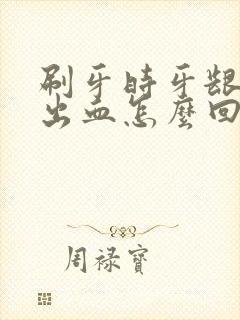 刷牙時牙龈
出血怎麼回
周禄寶